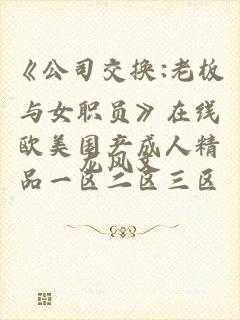 《公司交换:老板
与女职员》在线
欧美国产成人精
龙凤文
品一区二区三区